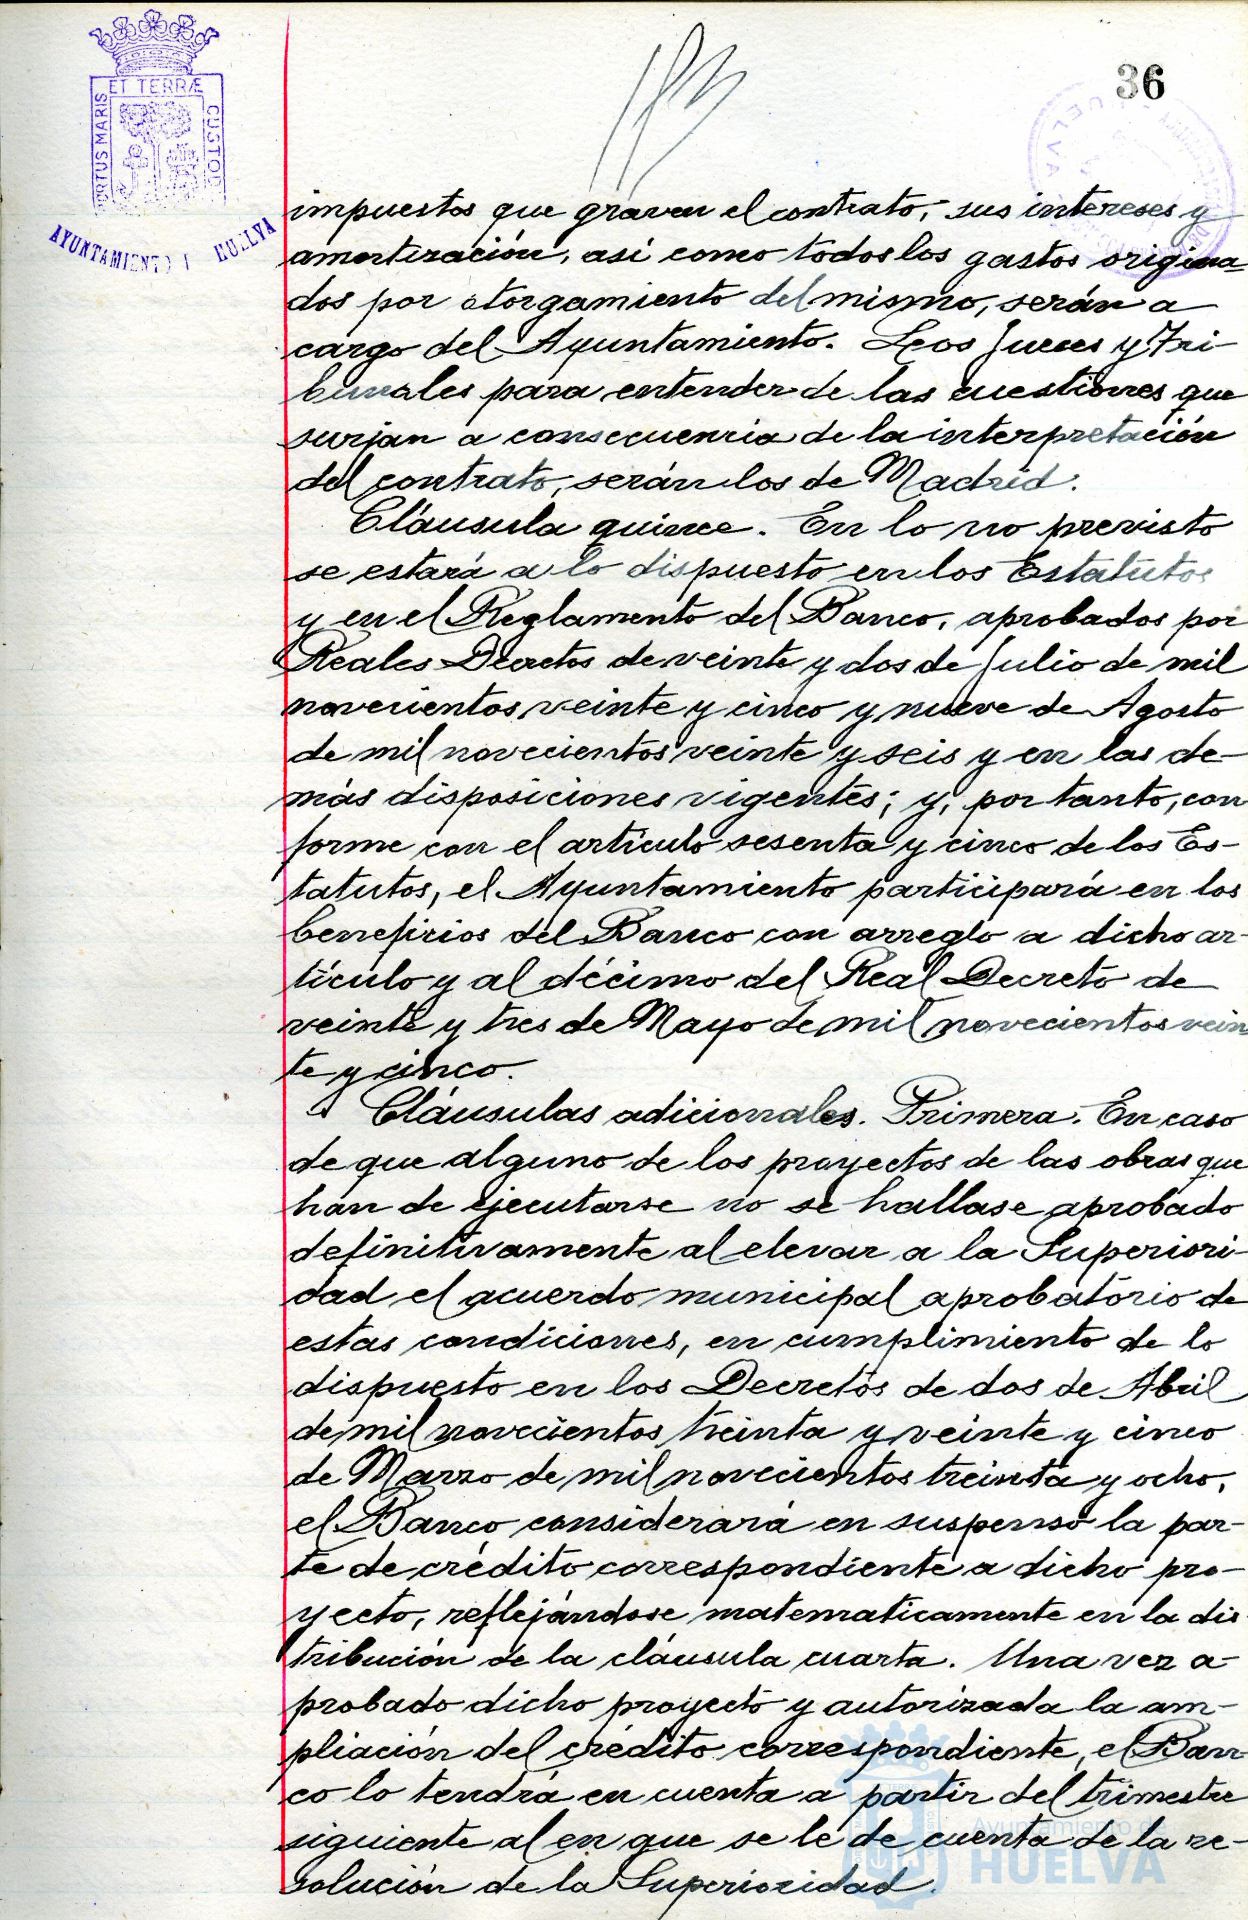 36
PORTUS MARIS ET TERRÆ CUSTOD
AYUNTAMIENTO HUELVA
impuestos que graven el contrato, sus intereses y
amortización, así como todos los gastos origina
dos por otorgamiento del mismo, serán a
cargo del Ayuntamiento. Leos Jueces y Tri-
bunales para entender de las cuestiones que
surjan a consecuencia de la interpretación
del contrato, serán los de Madrid.
Cláusula quince. En lo no previsto
se estará a lo dispuesto en los Estatutos
y en el Reglamento del Banco, aprobados por
Reales Decretos de veinte y dos de Julio de mil
novecientos veinte y cinco y nueve de Agosto
de mil novecientos veinte y seis y en las de-
más disposiciones vigentes; y, por tanto, con
forme con el artículo sesenta y cinco de los Es-
tatutos, el Ayuntamiento participará en los
beneficios del Banco con arreglo a dicho ar-
tículo y al décimo del Real Decreto de
veinte y tres de Mayo de mil novecientos vein
te y cinco.
Cláusulas adicionales. Primera. En caso
de que alguno de los proyectos de las obras que
han de ejecutarse no se hallase aprobado
definitivamente al elevar a la Superiori-
dad el acuerdo municipal aprobatorio de
estas condiciones, en cumplimiento de lo
dispuesto en los Decretos de dos de Abril
de mil novecientos treinta y veinte y cinco
de Marzo de mil novecientos treinta y ocho,
el Banco considerará en suspenso la par-
te de crédito correspondiente a dicho pro-
yecto, reflejándose matematicamente en la dis
tribución de la cláusula cuarta. Una vez a-
probado dicho proyecto y autorizada la am-
pliación del crédito correspondiente, el Ban-
co lo tendrá en cuenta a partir del trimestre
siguiente al en que se le de cuenta de la re-
solución de la Superioridad.
Ayuntamiento de
HUELVA